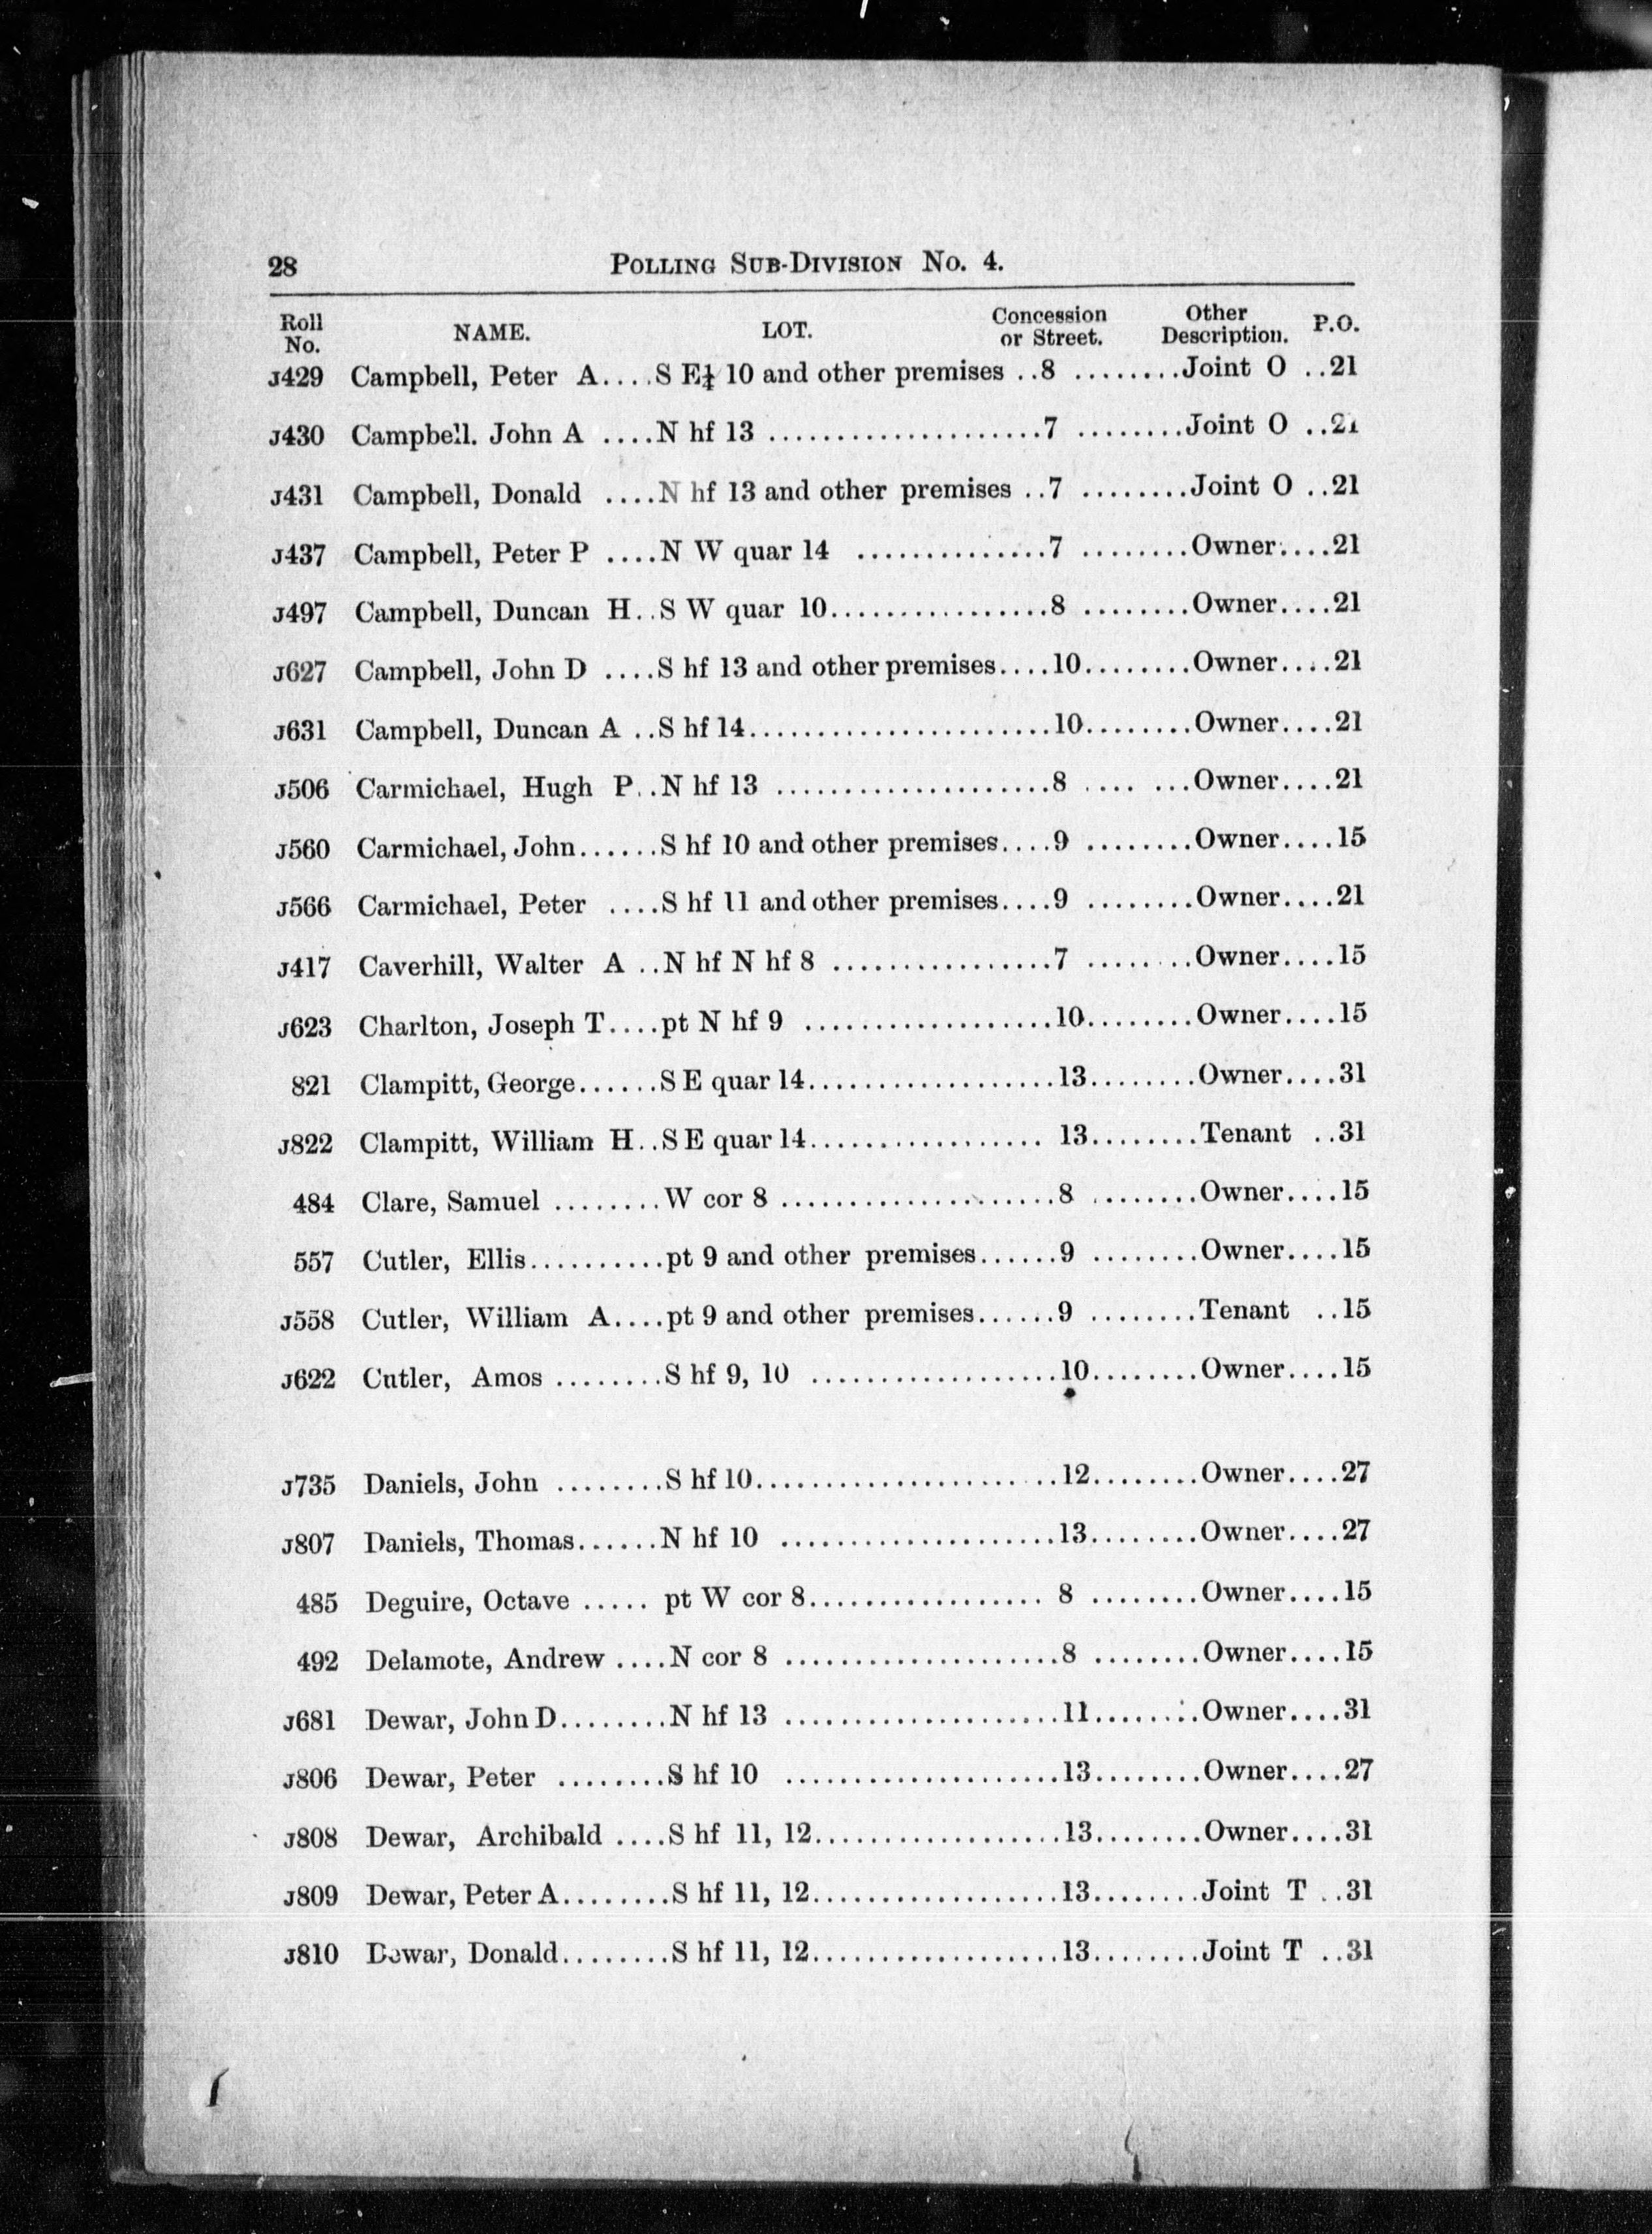 28 POLLING SUB-DIVISION No. 4.
Roll No. NAME. LOT. Concession or Street. Other Description. P.O.
J429 Campbell, Peter A....S E¼ 10 and other premises ..8 ........Joint O ..21
J430 Campbell. John A ....N hf 13 ....................7 ........Joint O ..21
J431 Campbell, Donald ....N hf 13 and other premises ..7 ........Joint O ..21
J437 Campbell, Peter P ....N W quar 14 ..............7 ........Owner....21
J497 Campbell, Duncan H..S W quar 10................8 ........Owner....21
J627 Campbell, John D ....S hf 13 and other premises....10........Owner....21
J631 Campbell, Duncan A ..S hf 14......................10........Owner....21
J506 Carmichael, Hugh P..N hf 13 ....................8 .... ...Owner....21
J560 Carmichael, John......S hf 10 and other premises....9 ........Owner....15
J566 Carmichael, Peter ....S hf 11 and other premises....9 ........Owner....21
J417 Caverhill, Walter A ..N hf N hf 8 ................7 ........Owner....15
J623 Charlton, Joseph T....pt N hf 9 ..................10........Owner....15
821 Clampitt, George......S E quar 14..................13........Owner....31
J822 Clampitt, William H..S E quar 14................. 13........Tenant ..31
484 Clare, Samuel ........W cor 8 ....................8 ........Owner....15
557 Cutler, Ellis..........pt 9 and other premises......9 ........Owner....15
J558 Cutler, William A....pt 9 and other premises......9 ........Tenant ..15
J622 Cutler, Amos ........S hf 9, 10 ..................10........Owner....15
J735 Daniels, John ........S hf 10......................12........Owner....27
J807 Daniels, Thomas......N hf 10 ....................13........Owner....27
485 Deguire, Octave ..... pt W cor 8................. 8 ........Owner....15
492 Delamote, Andrew ....N cor 8 ....................8 ........Owner....15
J681 Dewar, John D........N hf 13 ....................11........Owner....31
J806 Dewar, Peter ........S hf 10 ....................13........Owner....27
J808 Dewar, Archibald ....S hf 11, 12..................13........Owner....31
J809 Dewar, Peter A........S hf 11, 12..................13........Joint T ..31
J810 Dewar, Donald........S hf 11, 12..................13........Joint T ..31